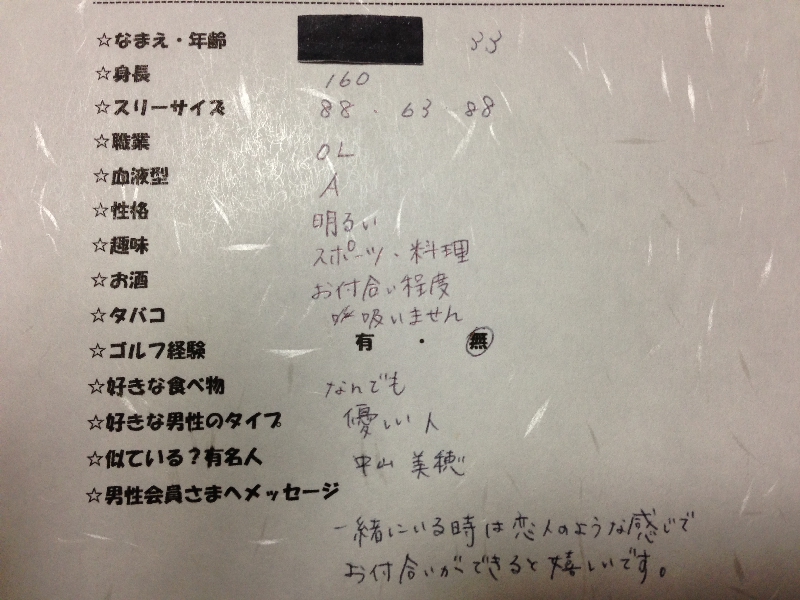 ☆なまえ・年齢 33
☆身長 160
☆スリーサイズ 88・63 88
☆職業 OL
☆血液型 A
☆性格 明るい
☆趣味 スポーツ・料理
☆お酒 お付合い程度
☆タバコ 吸いません
☆ゴルフ経験 有・無
☆好きな食べ物 なんでも
☆好きな男性のタイプ 優しい人
☆似ている？有名人 中山美穂
☆男性会員さまへメッセージ
一緒にいる時は恋人のような感じで
お付合いができると嬉しいです。